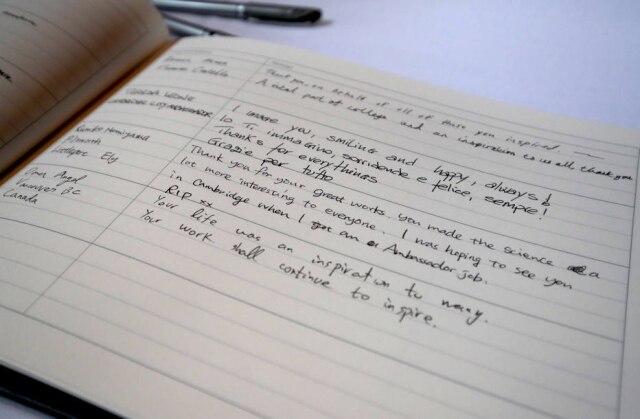 Thank you on behalf of all of those you inspired
A real part of college and an inspiration to us all. thank you
I image you, smiling and happy, always!
Io Ti immagino, sorridende e felice, sempre!
Thanks for everythings
Grazie per tutto
Thank you for your great works. you made the science a
lot more interesting to everyone. I was hoping to see you
in Cambridge when I got an Ambassador job.
RIP xx
Your life was an inspiration to many.
Your work shall continue to inspire.
Plymouth
Ely
Angel
Vancouver BC
Canada